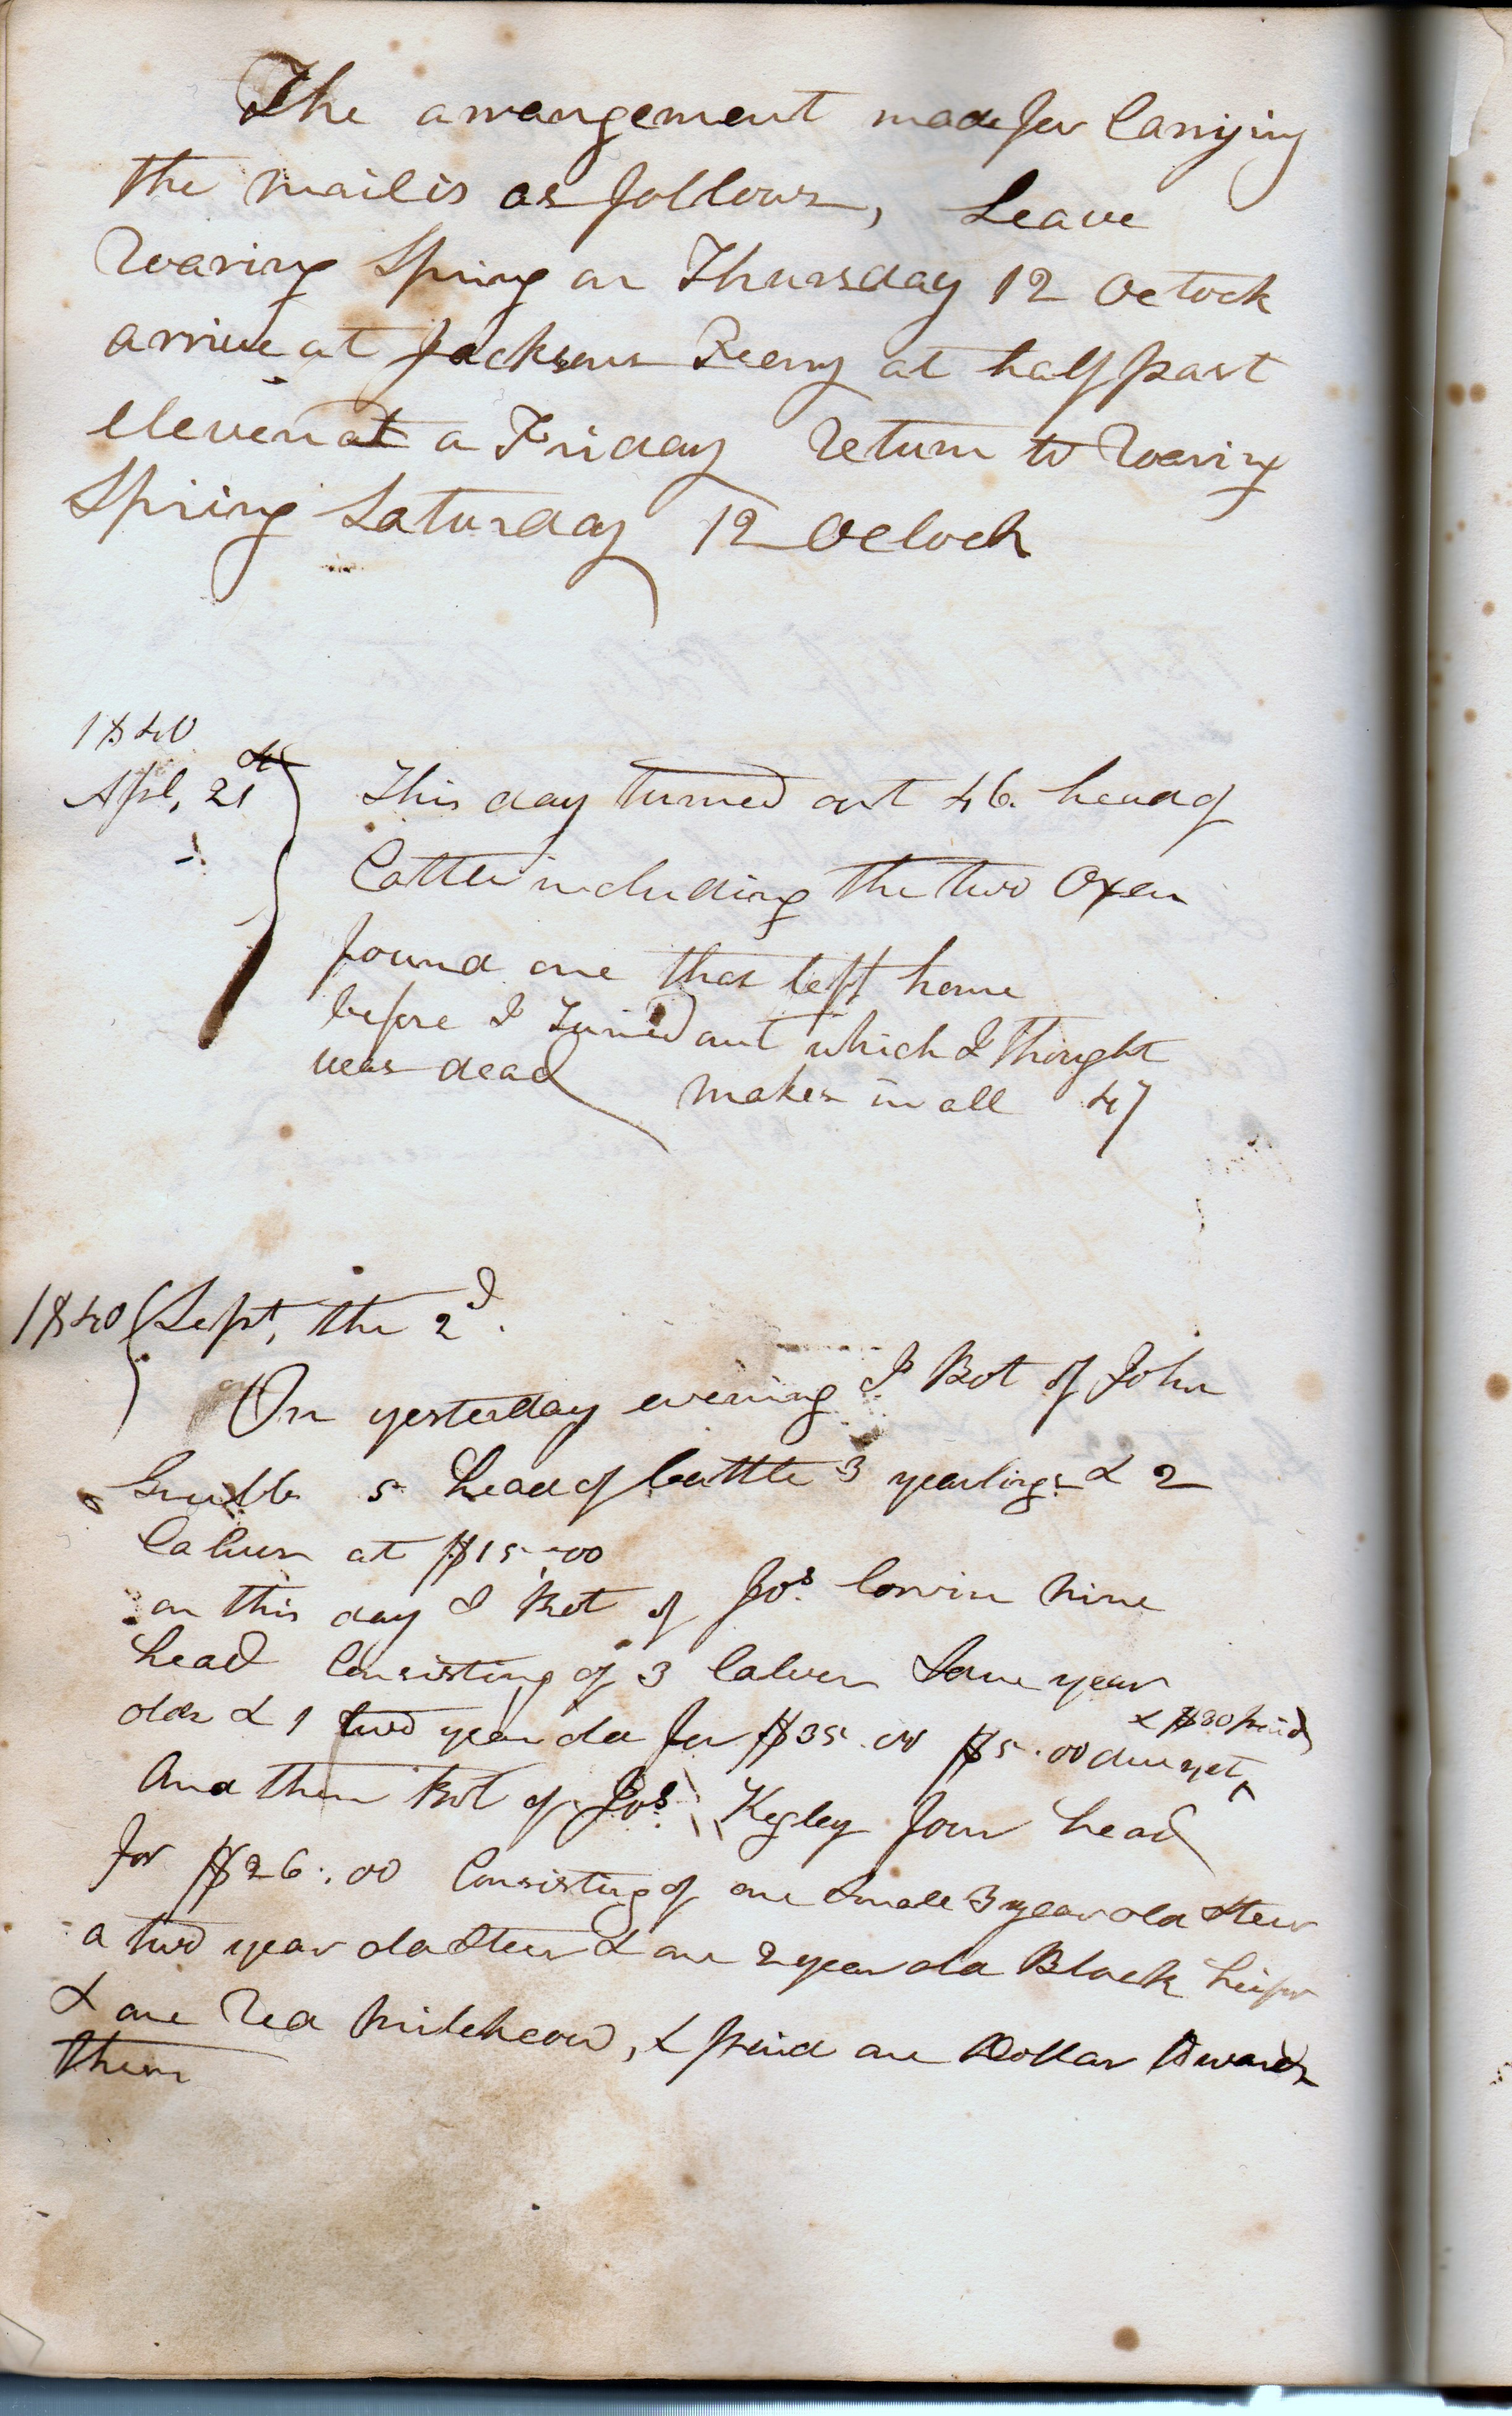 The arrangement made for Carrying
the mail is as follows, Leave
Roaring Spring on Thursday 12 Oclock
arrive at Jacksons Ferry at half past
eleven at a Friday return to Roaring
Spring Saturday 12 Oclock
1840
Apl, 21st
This day turned out 46 head of
Cattle including the two Oxen
found one that left home
before I Turned out which I thought
was dead makes in all 47
1840 Sept, the 2d.
On yesterday evening I Bot of John
Grubb 5 head of Cattle 3 yearlings & 2
Calves at $15.00
on this day I Bot of Jos. Corvin nine
head Consisting of 3 Calves some year
olds & 1 two year old for $35.00 $5.00 due yet
& $30 paid
And then Bot of Jos. Kegley four head
for $26.00 Consisting of one small 3 year old steer
a two year old steer & one 2 year old Black heifer
& one Red milch cow, & paid one Dollar towards
them